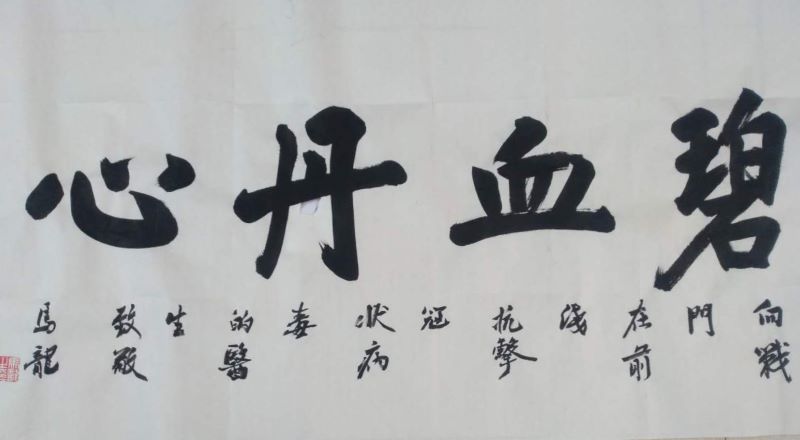 碧血丹心
向戰門在前綫抗擊冠狀病毒的醫生致敬
馬龍